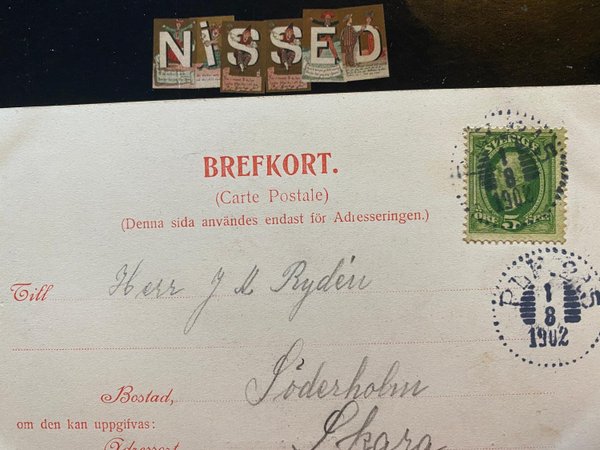 NiSSED
BREFKORT.
(Carte Postale)
(Denna sida användes endast för Adresseringen.)
SVERIGE
ÖRE 5
1
8
1902
Till Herr J A Rydén
1
8
1902
Bostad, Söderholm
om den kan uppgifvas:
Skara